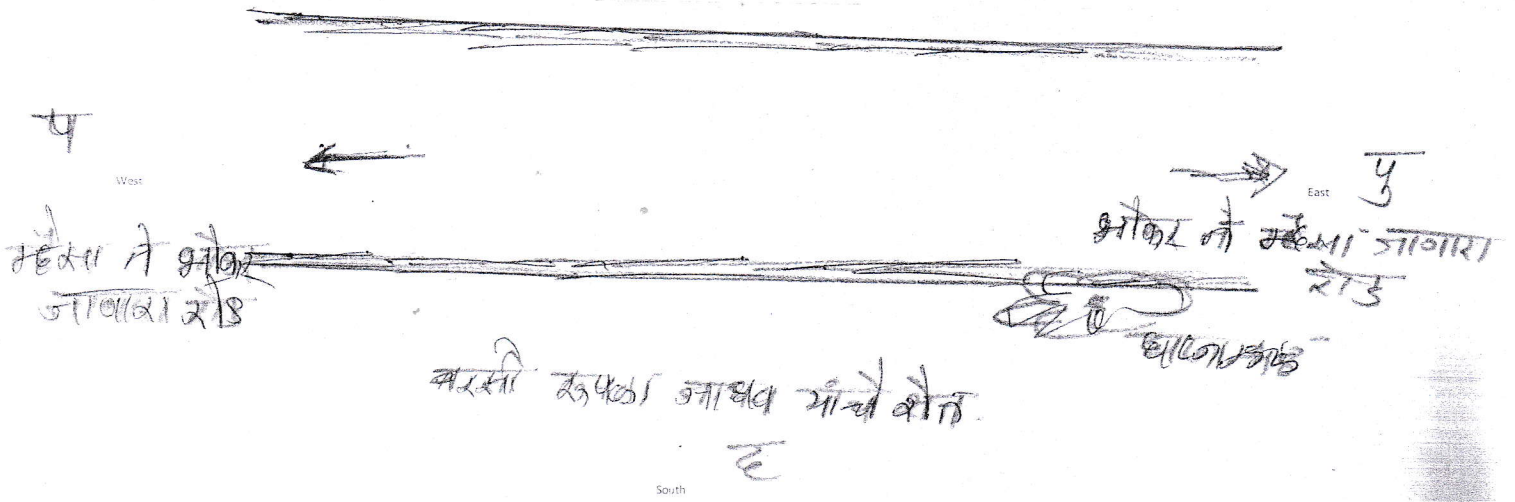 प
West
East पु
म्हैसा ते भोकर
जाणारा रोड
भोकर ते म्हैसा जाणारा
रोड
घटनास्थळ
नरसी रूपला जाधव यांचे शेत
द
South